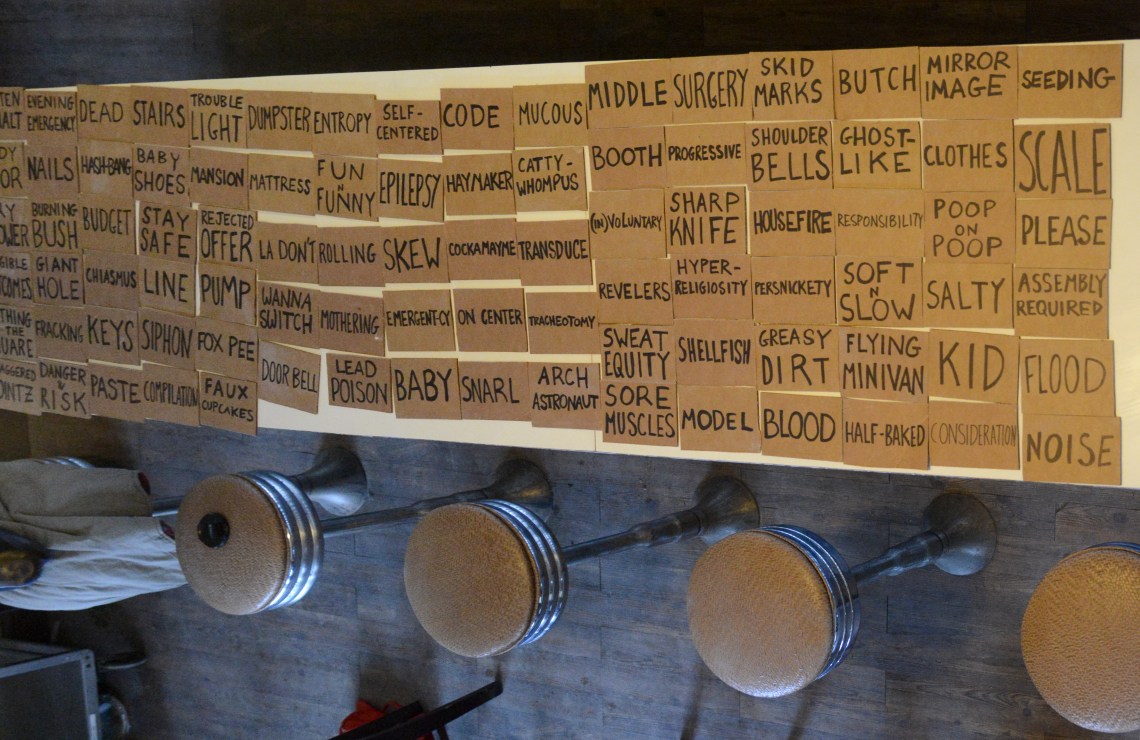 EVENING
EMERGENCY
DEAD
STAIRS
TROUBLE
LIGHT
DUMPSTER
ENTROPY
SELF-
CENTERED
CODE
MUCOUS
MIDDLE
SURGERY
SKID
MARKS
BUTCH
MIRROR
IMAGE
SEEDING
NAILS
HASH-BANG
BABY
SHOES
MANSION
MATTRESS
FUN
N
FUNNY
EPILEPSY
HAYMAKER
CATTY-
WHOMPUS
BOOTH
PROGRESSIVE
SHOULDER
BELLS
GHOST-
LIKE
CLOTHES
SCALE
BURNING
BUSH
BUDGET
STAY
SAFE
REJECTED
OFFER
LA DON'T
ROLLING
SKEW
COCKAMAYME
TRANSDUCE
(IN)VOLUNTARY
SHARP
KNIFE
HOUSEFIRE
RESPONSIBILITY
POOP
ON
POOP
PLEASE
GIANT
HOLE
CHIASMUS
LINE
PUMP
WANNA
SWITCH
MOTHERING
EMERGENT-CY
ON CENTER
TRACHEOTOMY
REVELERS
HYPER-
RELIGIOSITY
PERSNICKETY
SOFT
N
SLOW
SALTY
ASSEMBLY
REQUIRED
FRACKING
KEYS
SIPHON
FOX PEE
DOOR BELL
LEAD
POISON
BABY
SNARL
ARCH
ASTRONAUT
SWEAT
EQUITY
SHELLFISH
GREASY
DIRT
FLYING
MINIVAN
KID
FLOOD
DANGER
&
RISK
PASTE
COMPILATION
FAUX
CUPCAKES
SORE
MUSCLES
MODEL
BLOOD
HALF-BAKED
CONSIDERATION
NOISE